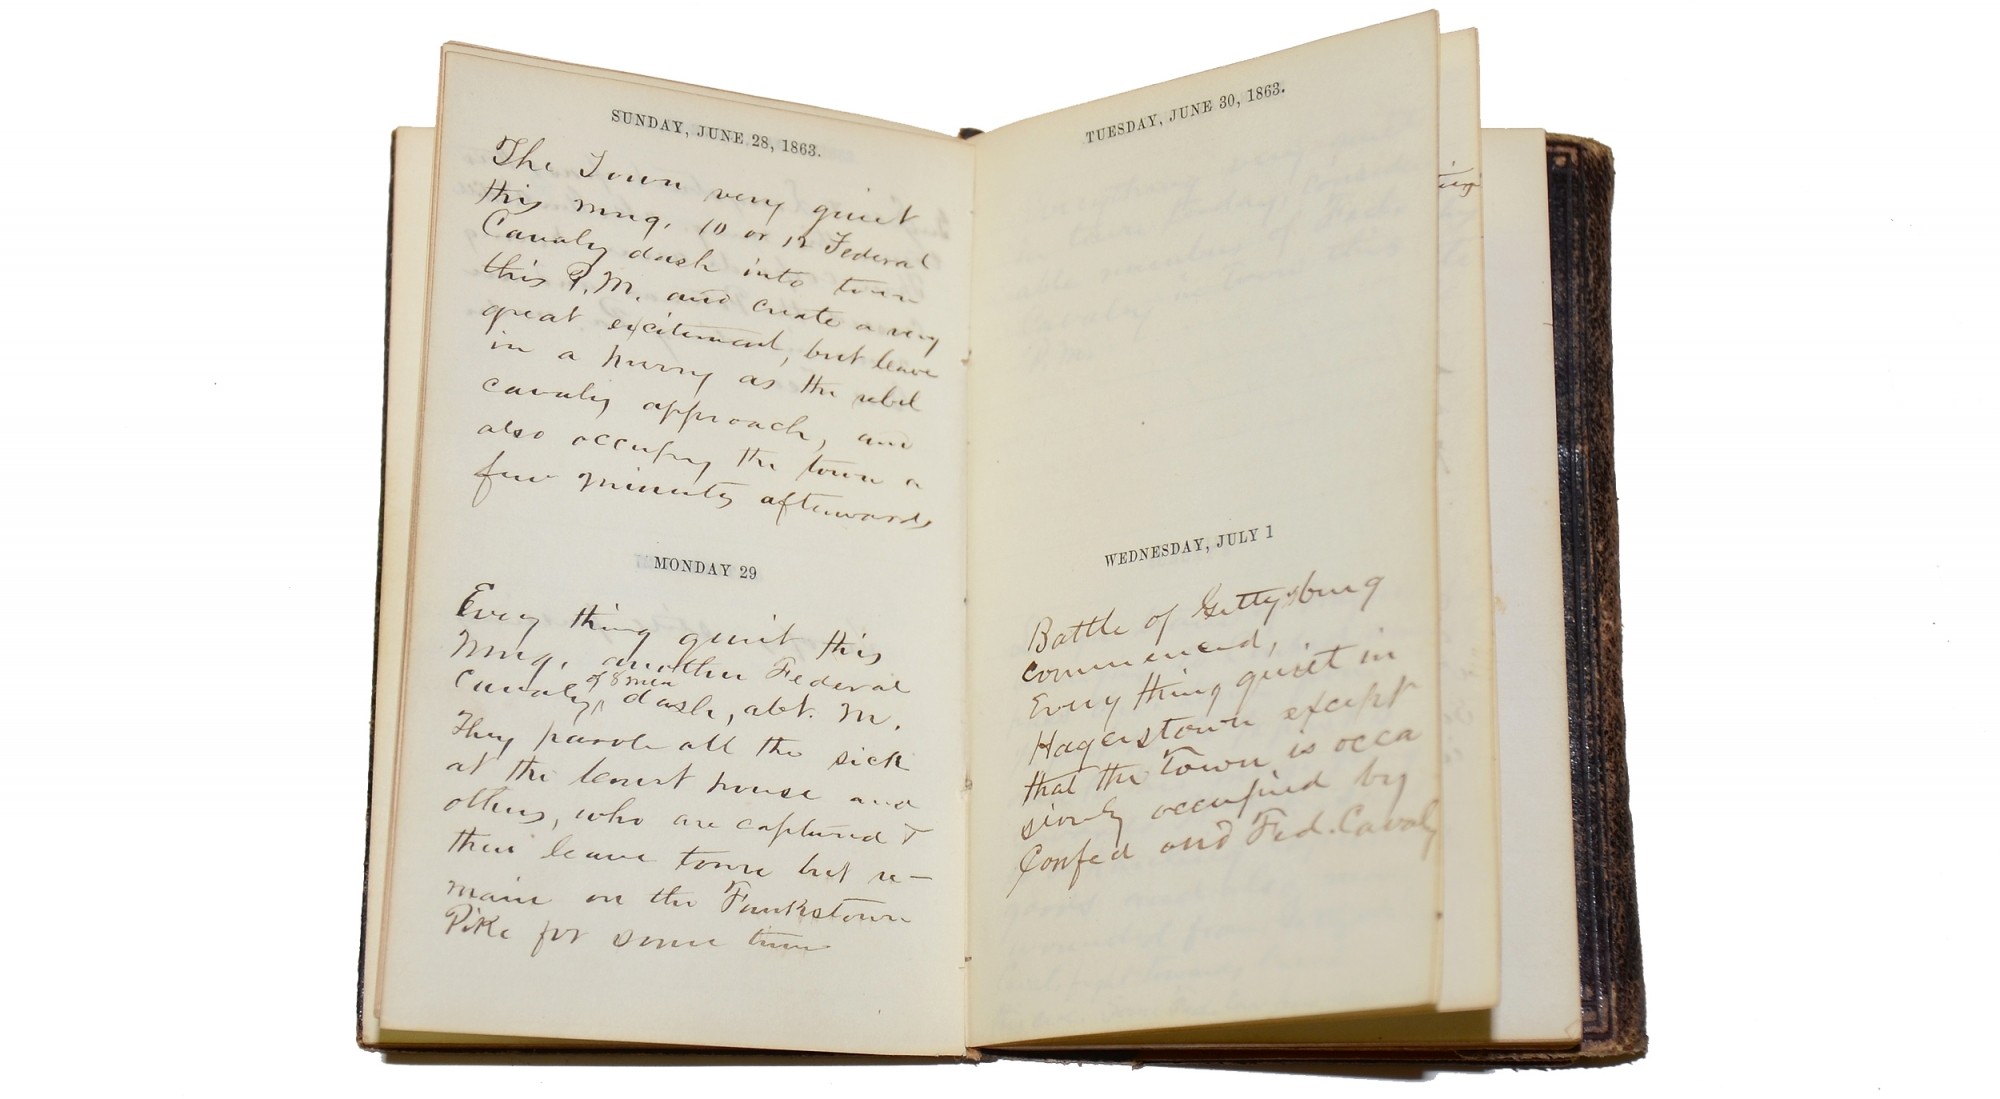 SUNDAY, JUNE 28, 1863.
The Town very quiet
this mng, 10 or 12 Federal
Cavaly dash into town
this P.M. and create a very
great excitement, but leave
in a hurry as the rebel
cavaly approach, and
also occupy the town a
few minuts afterwards
MONDAY 29
Every thing quiet this
Mng, another Federal
Cavaly, of 8 men dash, abt. M.
They parole all the sick
at the Court house and
others, who are captured &
then leave town but re-
main on the Funkstown
Pike for some time
TUESDAY, JUNE 30, 1863.
WEDNESDAY, JULY 1
Battle of Gettysburg
commenced,
Every thing quiet in
Hagerstown except
that the Town is occa
sionly occupied by
Confed and Fed. Cavaly